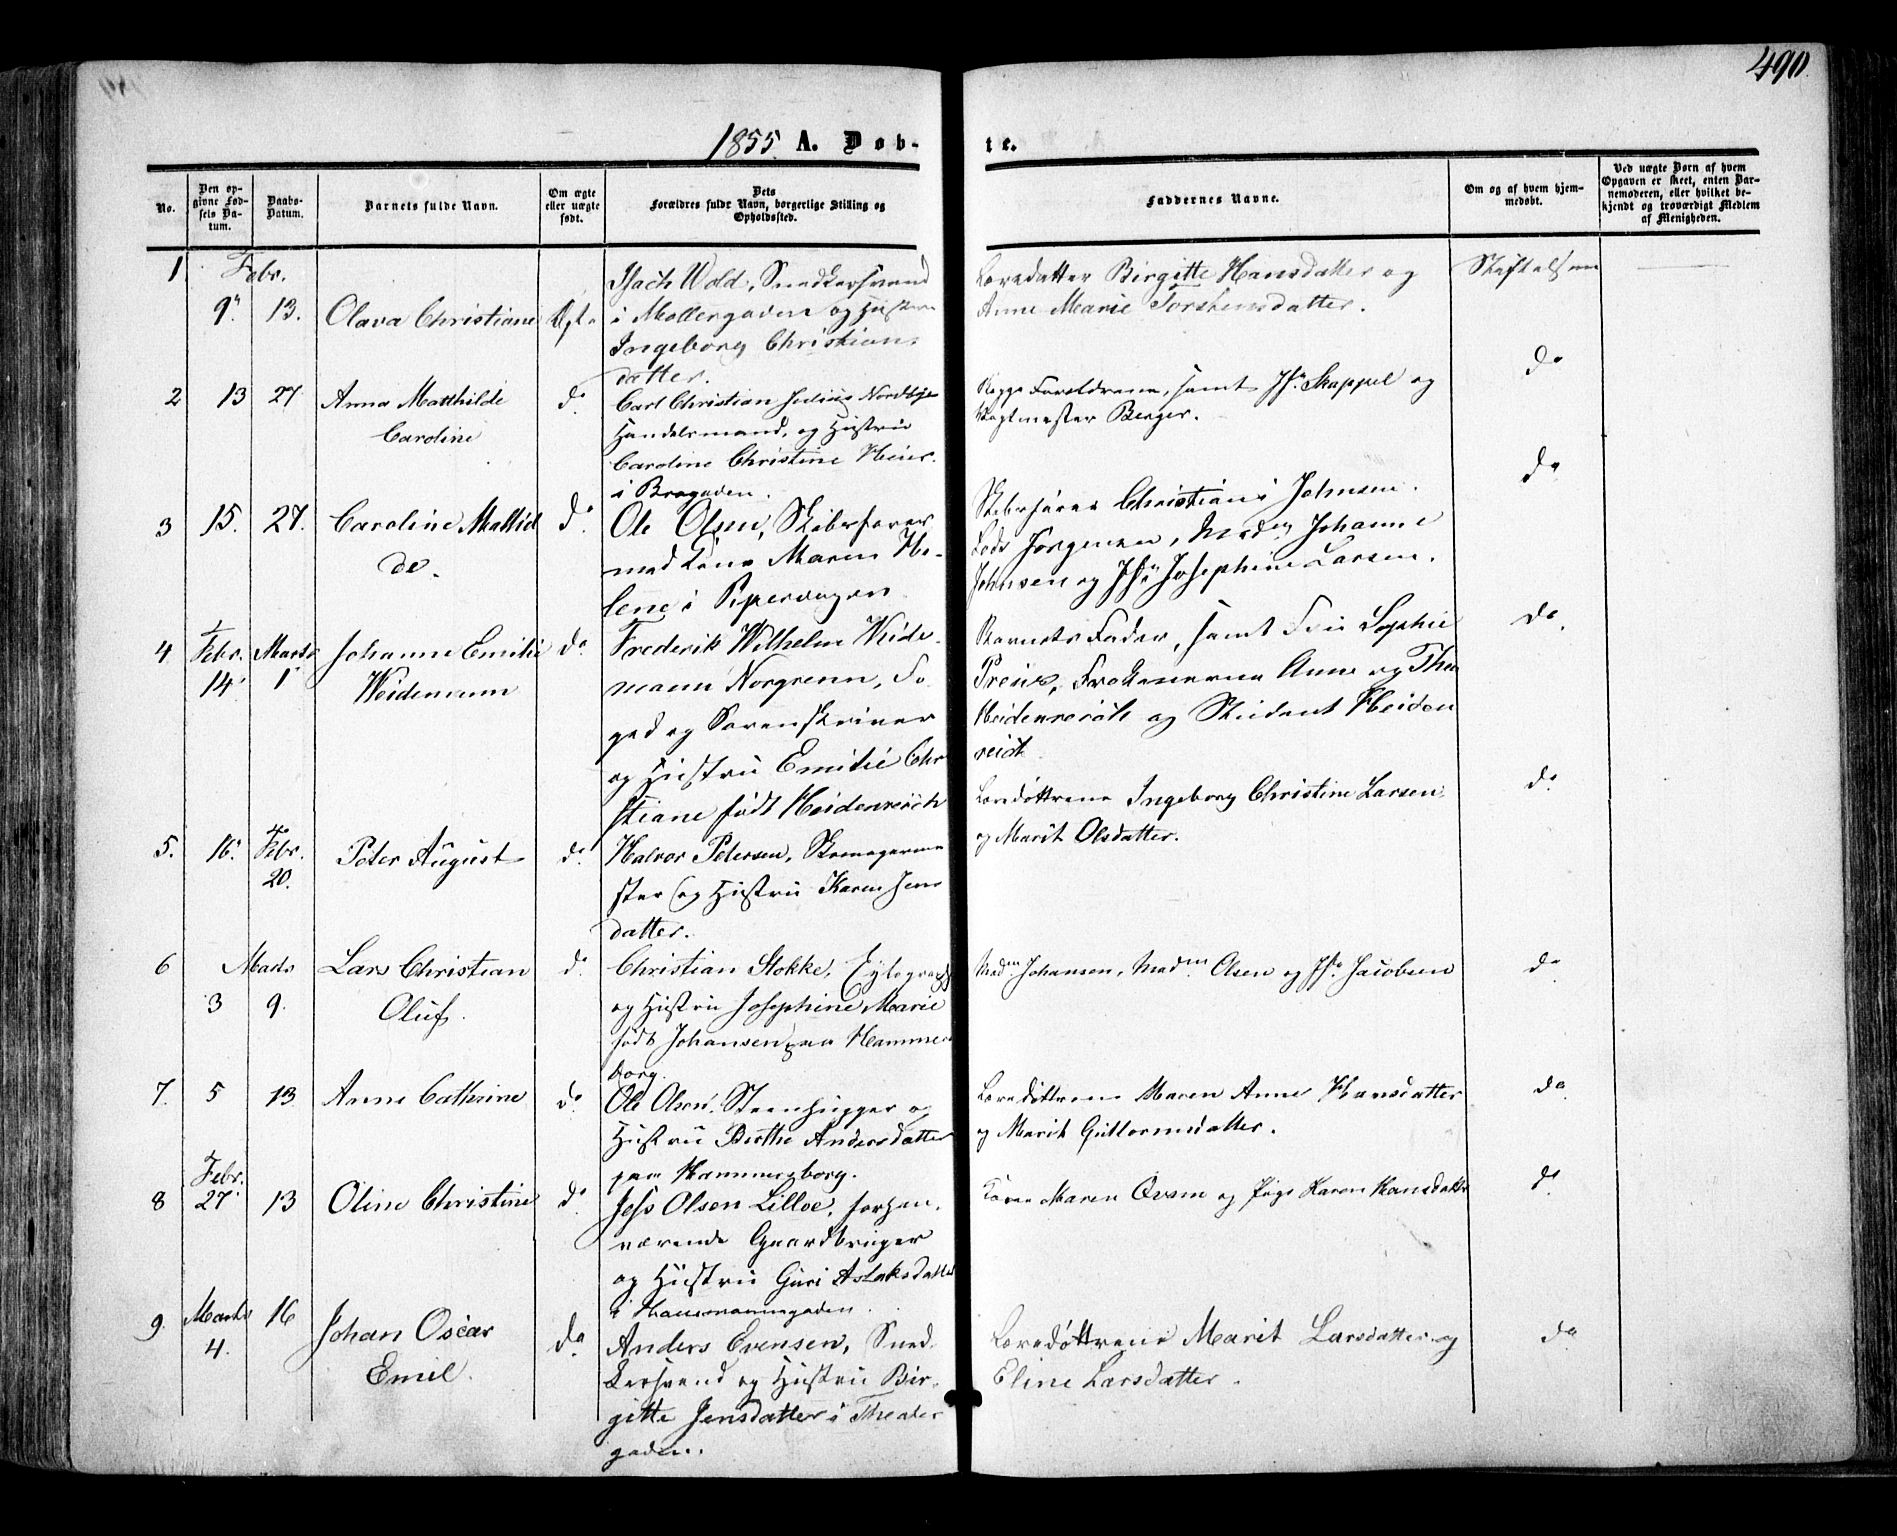 490
1855. A. Døb-
te.
No.
Den op-
givne Fød-
sels Da-
tum.
Daabs-
Datum.
Barnets fulde Navn.
Om ægte
eller uægte
født.
Dets
Forældres fulde Navn, borgerlige Stilling og
Opholdssted.
Faddernes Navne.
Om og af hvem hjem-
medøbt.
Ved uægte Børn af hvem
Opgaven er skeet, enten Bar-
nemoderen, eller hvilket be-
kjendt og troværdigt Medlem
af Menigheden.
1 Febr.
9. 13. Olava Christiane Ægte
Isach Wold, Snedkersvend
i Møllergaden og Hustru
Ingeborg Christians
datter.
Læredatter Birgitte Hansdatter og
Anne Marie Torstensdatter.
Stiftelsen
2 13 27 Anna Matthilde
Caroline
do.
Carl Christian Julius Nordbye
Handelsmand, og Hustru
Caroline Christine Heier.
i Brogaden.
Begge Forældrene, samt Jfr. Skappel og
Vagtmester Berger.
do
3 15. 27. Caroline Mathil
de.
do.
Ole Olsen, Skibsfører
med Kone Maren He-
lene i Pipervigen
Skibsfører Christian Johnsen.
Lods Jørgensen, Madm Johanne
Johnsen og Jfr Josephine Larsen.
do
4 Febr. 14. Marts 1 Johanne Emilie
Weidemann
do.
Frederik Wilhelm Weide-
mann Norgrenn, Fo
ged og Sorenskriver
og Hustru Emilie Chr
stiane født Heidenreich
Barnets Fader, samt Frue Sophie
Preus, Frøknerne Anne og Thea
Heidenreich og Student Heiden
reich
do.
5. 16. Febr.
20. Peter August do.
Halvor Petersen, Skomagerme
ster og Hustru Karen Jens
datter.
Læredøttrene Ingeborg Christine Larsen
og Marit Olsdatter.
do.
6 Marts
3 9. Lars Christian
Oluf.
do.
Christian Stokke,
og Hustru Josephine Marie
født Johansen paa Hammers
borg.
Madm Johansen, Madm Olsen og Jfr. Jacobsen
do.
7. 5 13 Anne Cathrine do.
Ole Olsen, Steenhugger og
Hustru Berthe Andersdatter
paa Hammersborg.
Læredøttrene Maren Anne Hansdatter
og Marit Guttormsdatter.
do.
8 Febr.
27. 13 Oline Christine do.
Jess Olsen Lilloe, forhen-
værende Gaardbruger
og Hustru Guri Aslaksdatter
i Hausmannsgaden.
Kone Maren Evsen og Pige Karen Hansdatter
do.
9. Marts
4. 16 Johan Oscar
Emil.
do.
Anders Evensen, Sned-
kersvend og Hustru Bir-
gitte Jensdatter i Theater
gaden.
Læredøttrene Marit Larsdatter og
Eline Larsdatter.
do